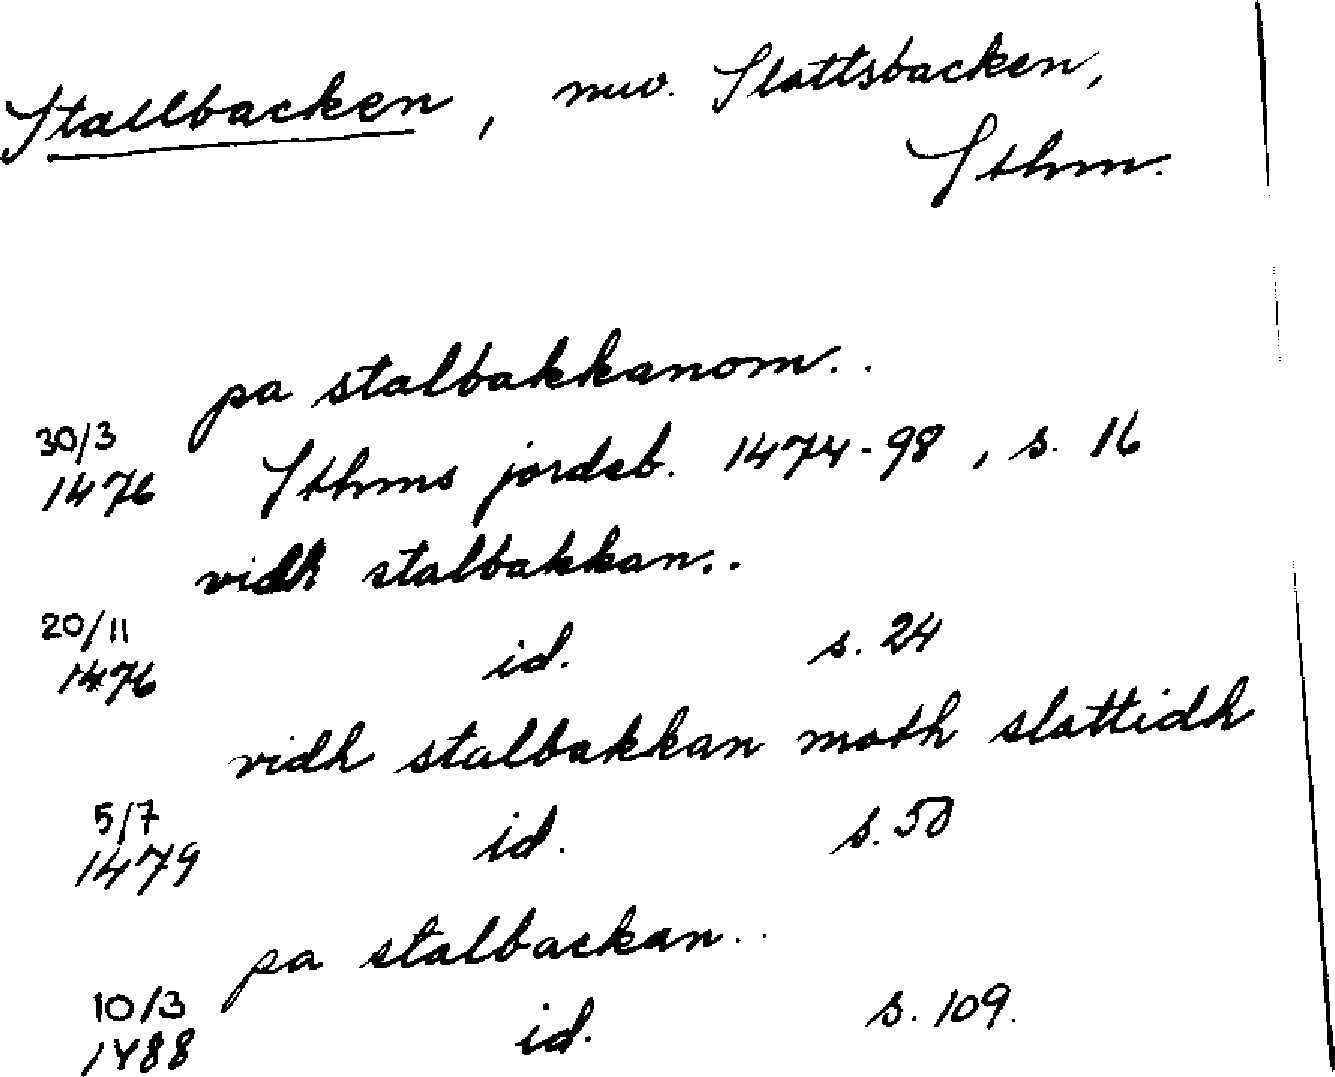 Stallbacken, nuv. Slottsbacken,
Sthm.
pa stalbakkanom..
30/3
1476 Sthms jordeb. 1474-98, s. 16
vidh stalbakkan..
20/11
1476 id. s. 24
vidh stalbakkan moth slottidh
5/7
1479 id. s. 50
pa stalbackan..
10/3
1488 id. s. 109.